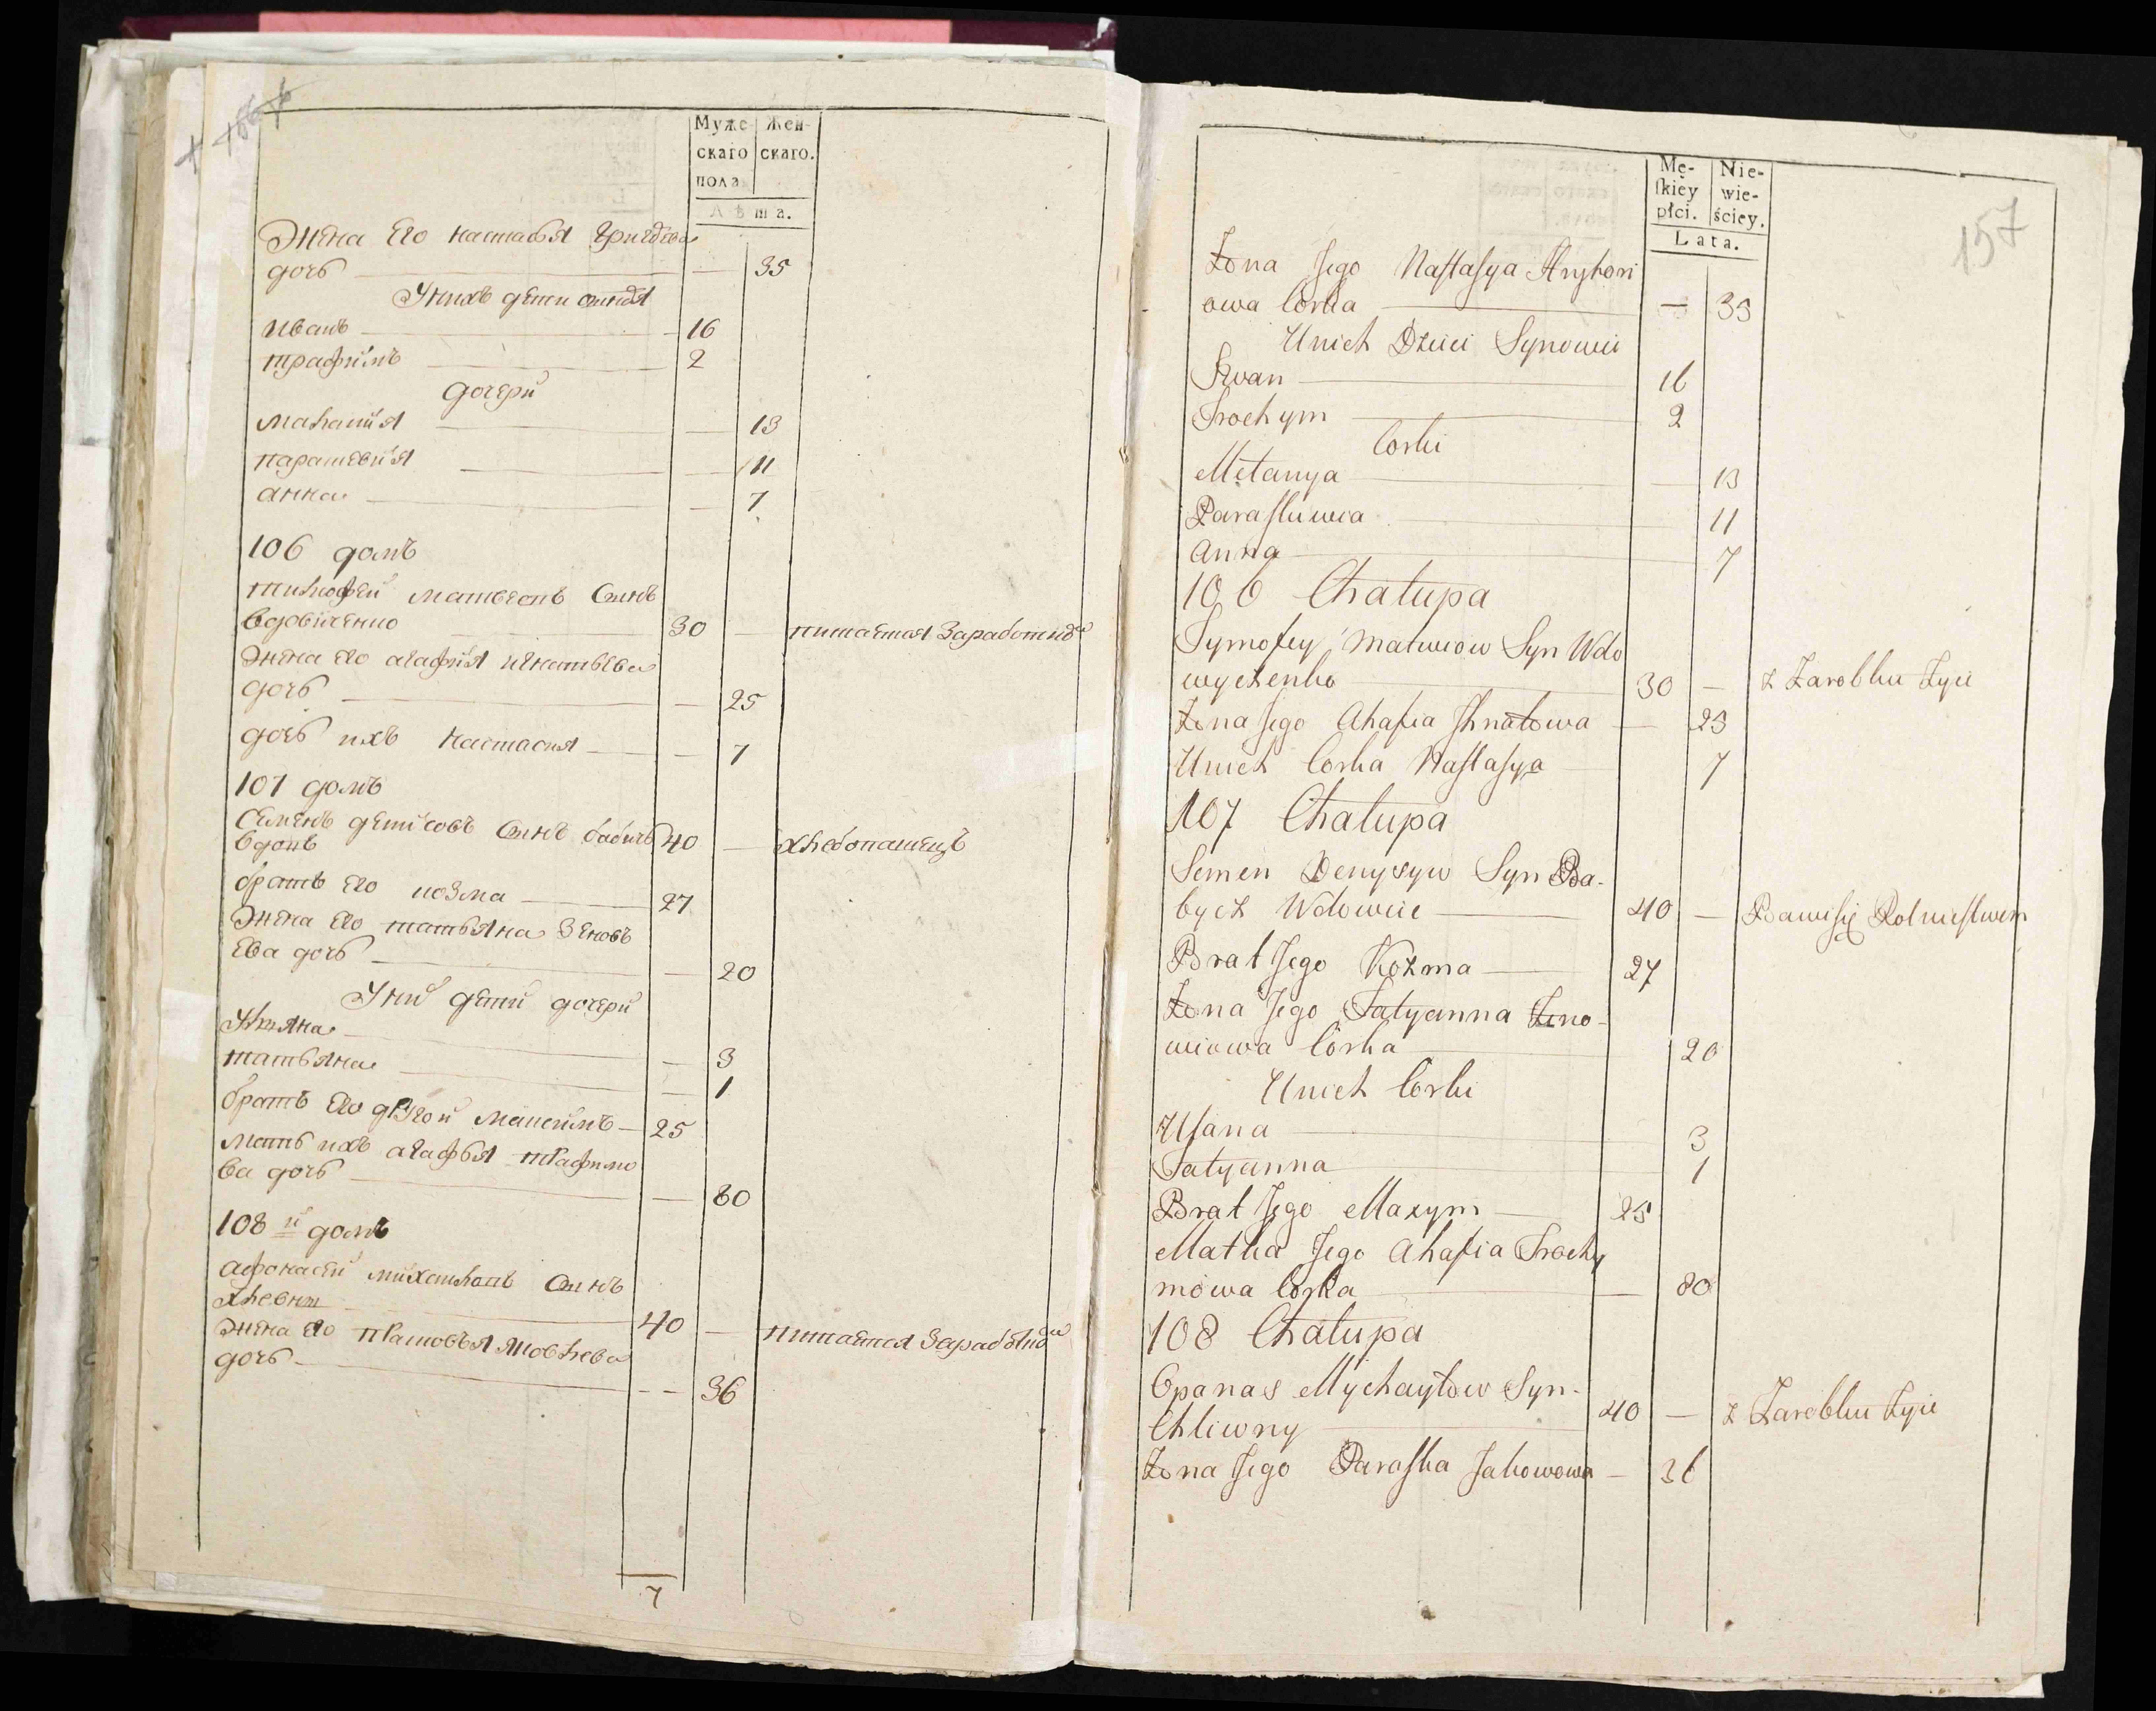 Муже- Жен-
скаго скаго.
пола
Лѣта.
Жена Его настасья Григорева
дочь — 35
У них дети сыновя
иванъ 16
трафимъ 2
дочери
малания — 13
парасковия — 11
анна — 7
106 домъ
тимофеи матвеовъ Сынъ
вдовиченко 30 — питается Заработкомъ
Жена его агафия игнатьева
дочь — 25
дочь ихъ настасия — 7
107 домъ
Семенъ денисовъ Сынъ бабичъ 40 — хлебопашецъ
вдовъ
братъ Его козма 27
Жена Его татьяна Зеновъ
ева дочь — 20
У них дети дочери
Ульяна — 3
татьяна — 1
братъ Его другой максимъ 25
мать ихъ агафья трафимо
ва дочь — 80
108й домъ
афонасеи михаиловъ Сынъ
хлевни 40 — питается Заработкомъ
жена Его парасковья яковлева
дочь — 36
7
157
Mę- Nie-
skiéy wie-
płci. ściey.
Lata.
Żona Jego Nastasya Hryhori
owa Corka — 35
U nich Dzieci Synowie
Iwan 16
Trochym 2
Corki
Mełanya — 13
Paraskiewia 11
Anna 7
106 Chałupa
Tymofey Matwiow Syn Wdo
wyczenko 30 — z Zarobku Żyie
Żona Jego Ahafia Ihnatowa — 25
U nich Corka Nastasya 7
107 Chałupa
Semen Denysyw Syn Ba-
bycz Wdowiec 40 — Bawi się Rolnictwem
Brat Jego Kozma 27
Żona Jego Tatyanna Zeno-
wiowa Corka 20
U nich Corki
Ulana 3
Tatyanna 1
Brat Jego Maxym 25
Matka Jego Ahafia Trochy
mowa Corka — 80
108 Chałupa
Opanas Mychayłow Syn-
Chliwny 40 — z Zarobku Żyie
Żona Jego Paraska Jakowowa — 36